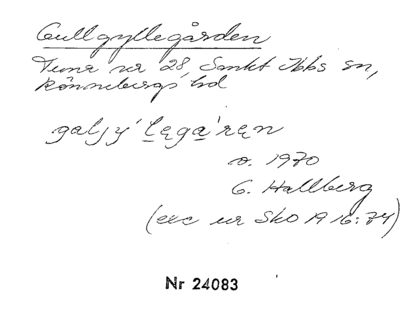 Gullgyllegården
Tuna nr 28, Sankt Ibbs sn,
Rönnebergs hd
galjy´lega`ren
o. 1970
G. Hallberg
(exc ur Sko A 16:74)
Nr 24083